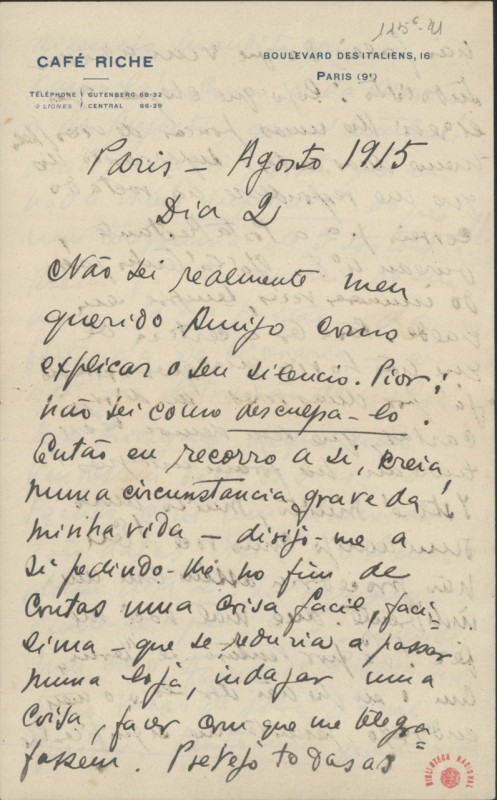 115⁶-41
CAFÉ RICHE
BOULEVARD DES ITALIENS, 16
PARIS (9ᵉ)
TÉLÉPHONE GUTENBERG 68-32
2 LIGNES CENTRAL 86-29
Paris — Agosto 1915
Dia 2
Não sei realmente meu
querido Amigo como
explicar o seu silencio. Pior:
não sei como desculpa-lo.
Então eu recorro a si, creia,
numa circunstancia grave da
minha vida — dirijo-me a
si pedindo-lhe no fim de
contas uma coisa facil, faci-
lima — que se reduzia a passar
numa loja, indagar uma
coisa, fazer com que me telegra-
fassem. Prevejo todas as
BIBLIOTECA NACIONAL